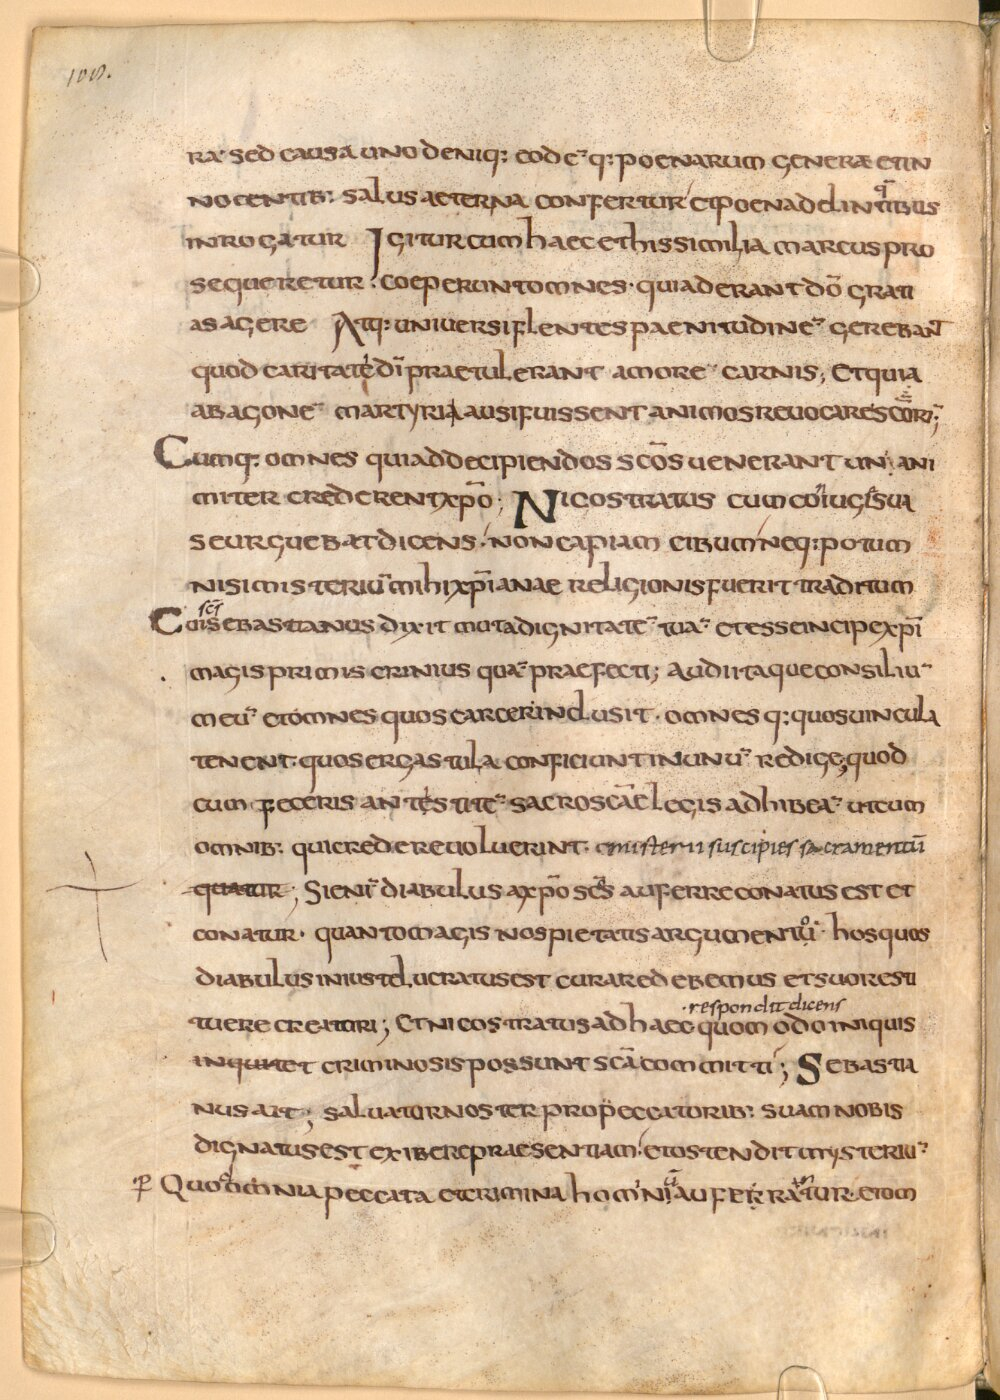 108.
ra· sed causa uno deniq: eodē q: poenarum generæ etin
nocentib: salus aeterna confertur et poena delinqtibus
inrogatur Igitur cum haec et his similia marcus pro
sequeretur. coeperunt omnes · qui aderant dō grati
as agere Atq: uniuersi flentes paenitudinē gerebant
quod caritate dī praetulerant amorē carnis; Et quia
ab agonē martyria ausi fuissent animos reuocare scōrū;
Cumq: omnes qui ad decipiendos scōs uenerant uni ani
miter crederent xpō; Nicostratus cum coiuge sua
se urguebat dicens · non capiam cibum neq: potum
nisi misteriū mihi xpīanae religionis fuerit traditum
scs
Cui sebastianus dixit muta dignitatē tuā et esse incipe xpī
magis primiscrinius quā praefecti; audi itaque consiliū
meū et omnes quos carcer inclusit · omnes q: quos uincula
tenent· quos ergastula conficiunt in unū redige, quod
cum feceris antestitē sacroscāē legis adhibeā ut cum
omnib: qui credere uoluerint· misterii suscipies sacramentū
quatur; Si enī diabulus a xpō scōs auferre conatus est et
conatur· quanto magis nos pietatis argumento· hos quos
diabulus iniuste lucratus est curare debemus et suo resti
tuere creatori; Et nicostratus ad haec quomodo iniquis
· respondit dicens
inquit et criminosis possunt scā committi; Sebastia
nus ait; saluator noster pro peccatorib: suam nobis
dignatus est exibere praesentiam· et ostendit mysteriū
p Quo omnia peccata et crimina hominū auferrantur· et om